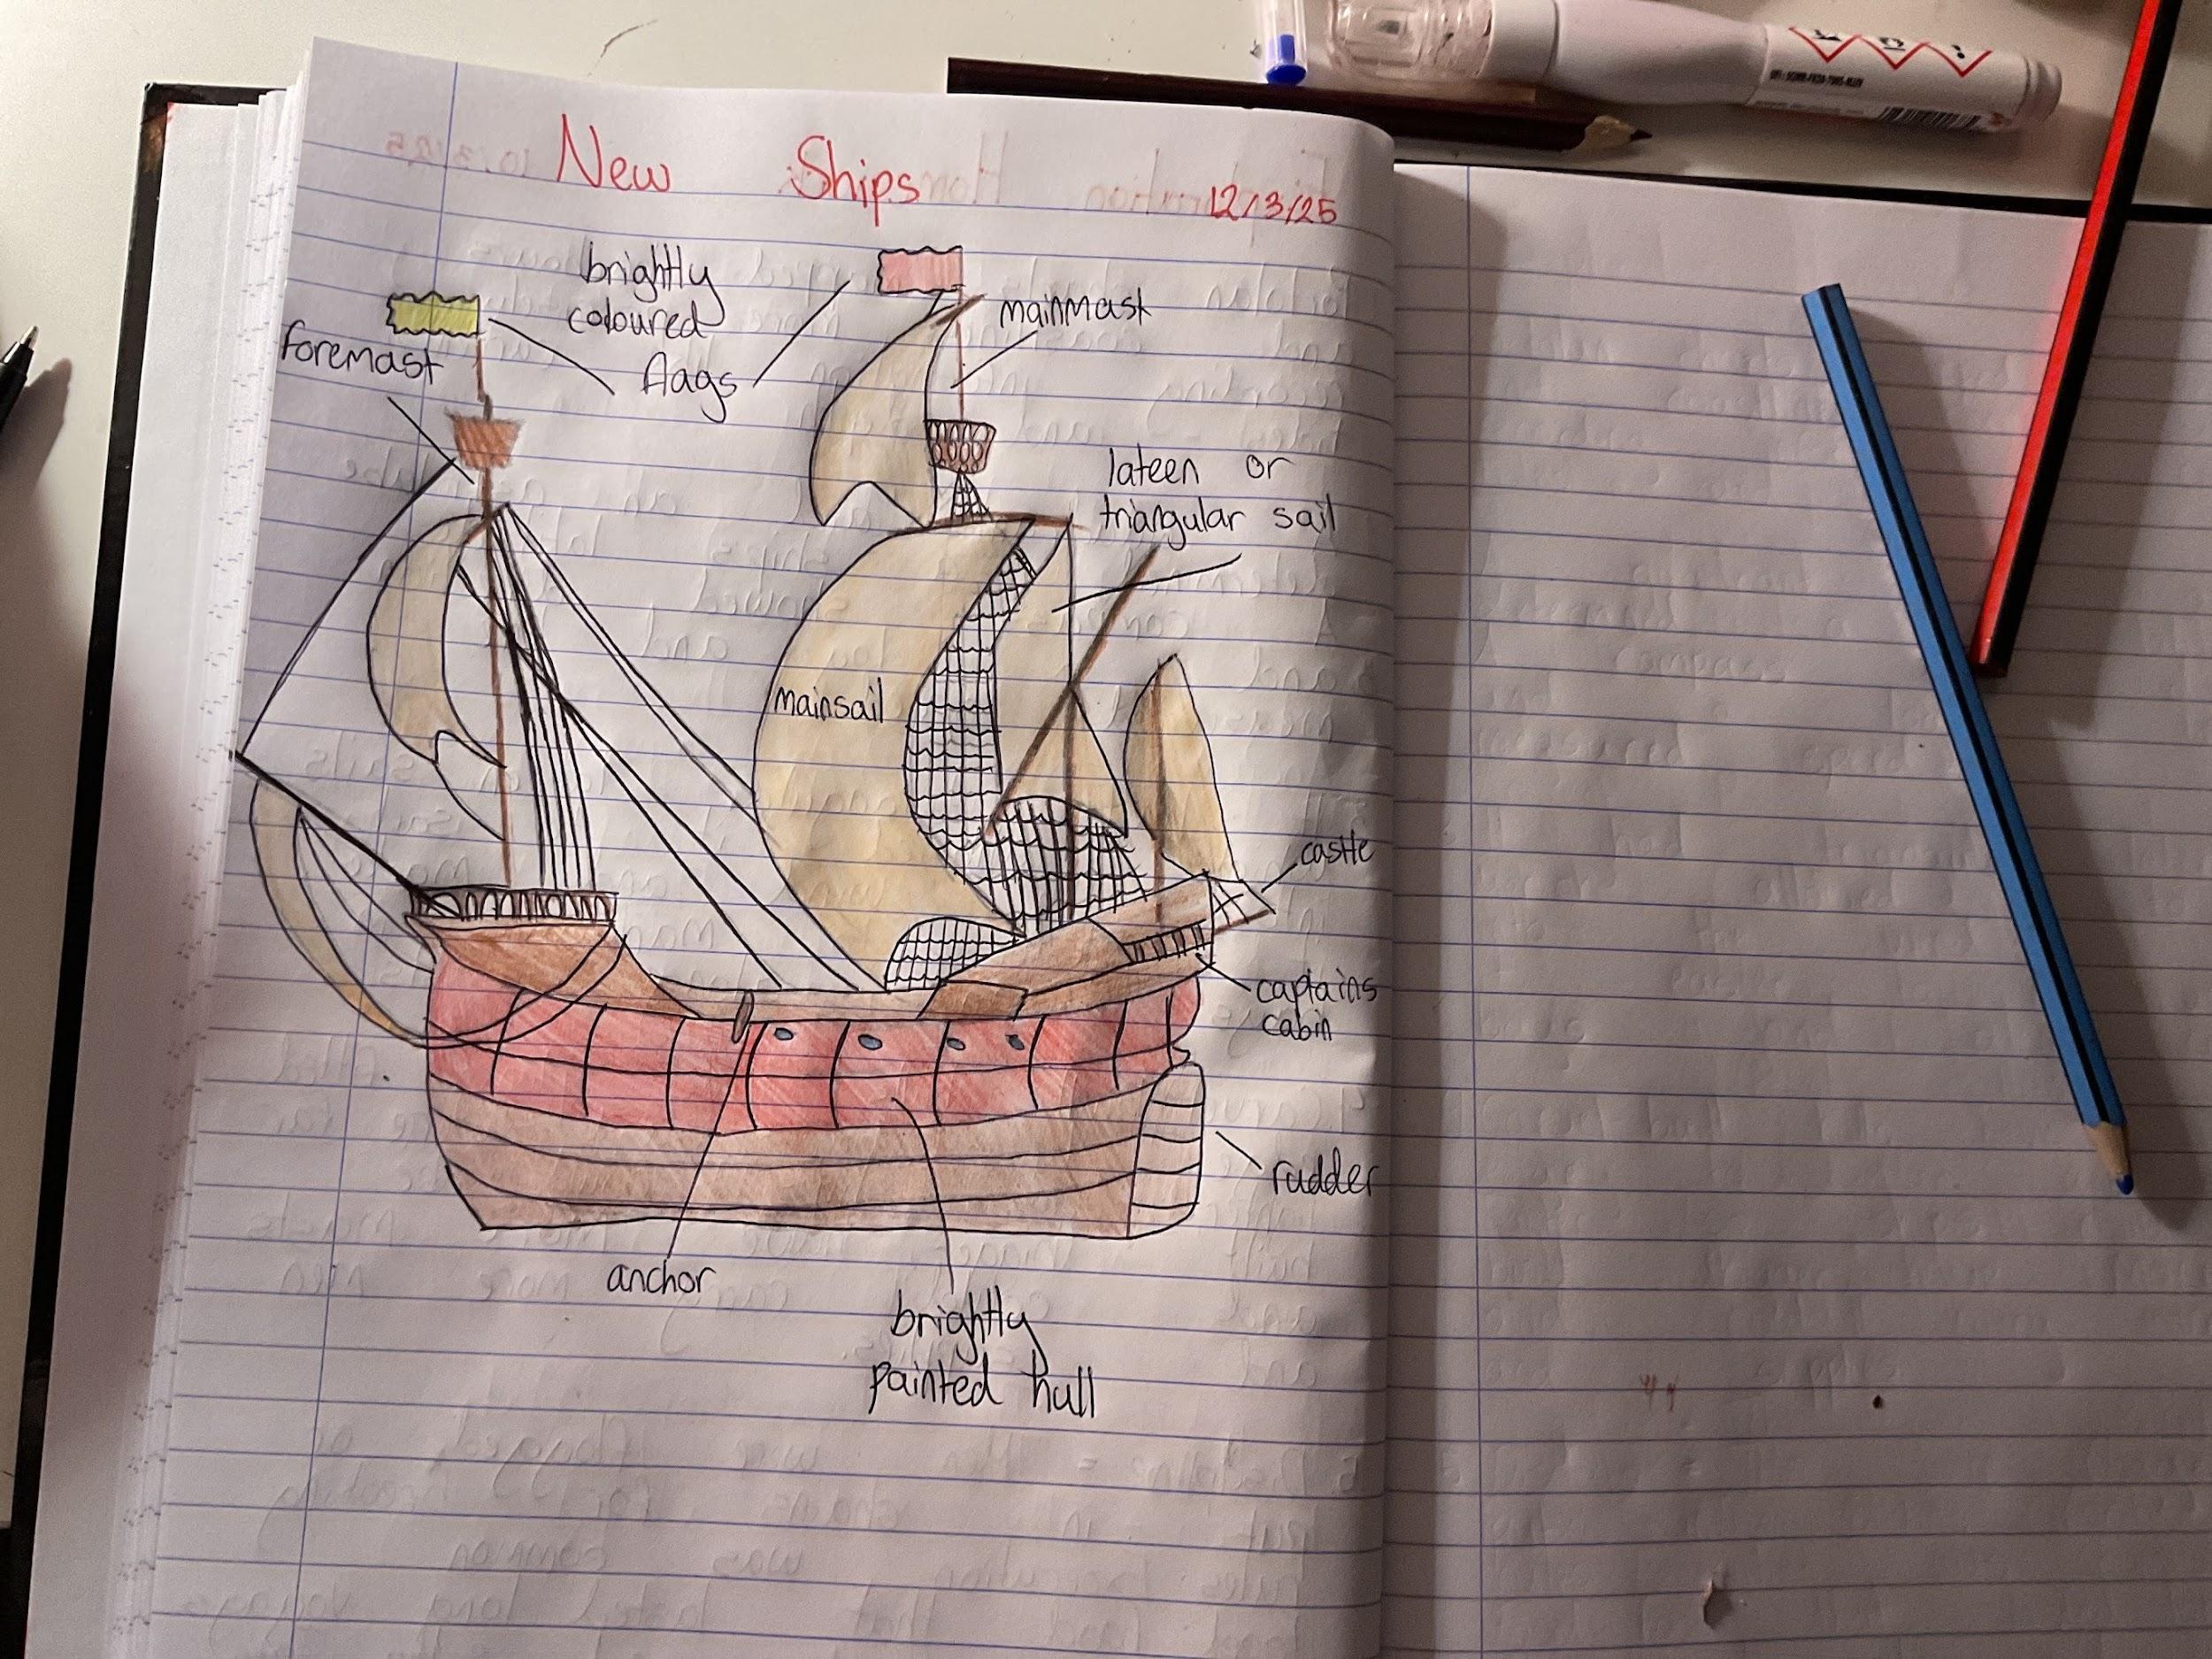 New Ships
12/3/25
brightly
coloured
flags
foremast
mainmast
lateen or
triangular sail
mainsail
castle
captains
cabin
rudder
anchor
brightly
painted hull